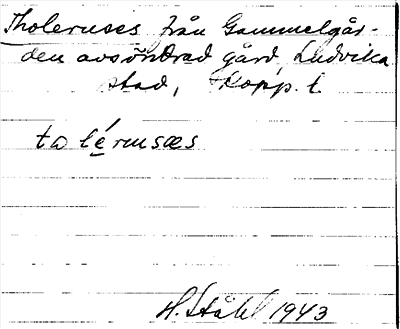 Tholeruses från Gammelgår-
den avsöndrad gård, Ludvika
stad, Kopp. l.
H. Ståhl 1943